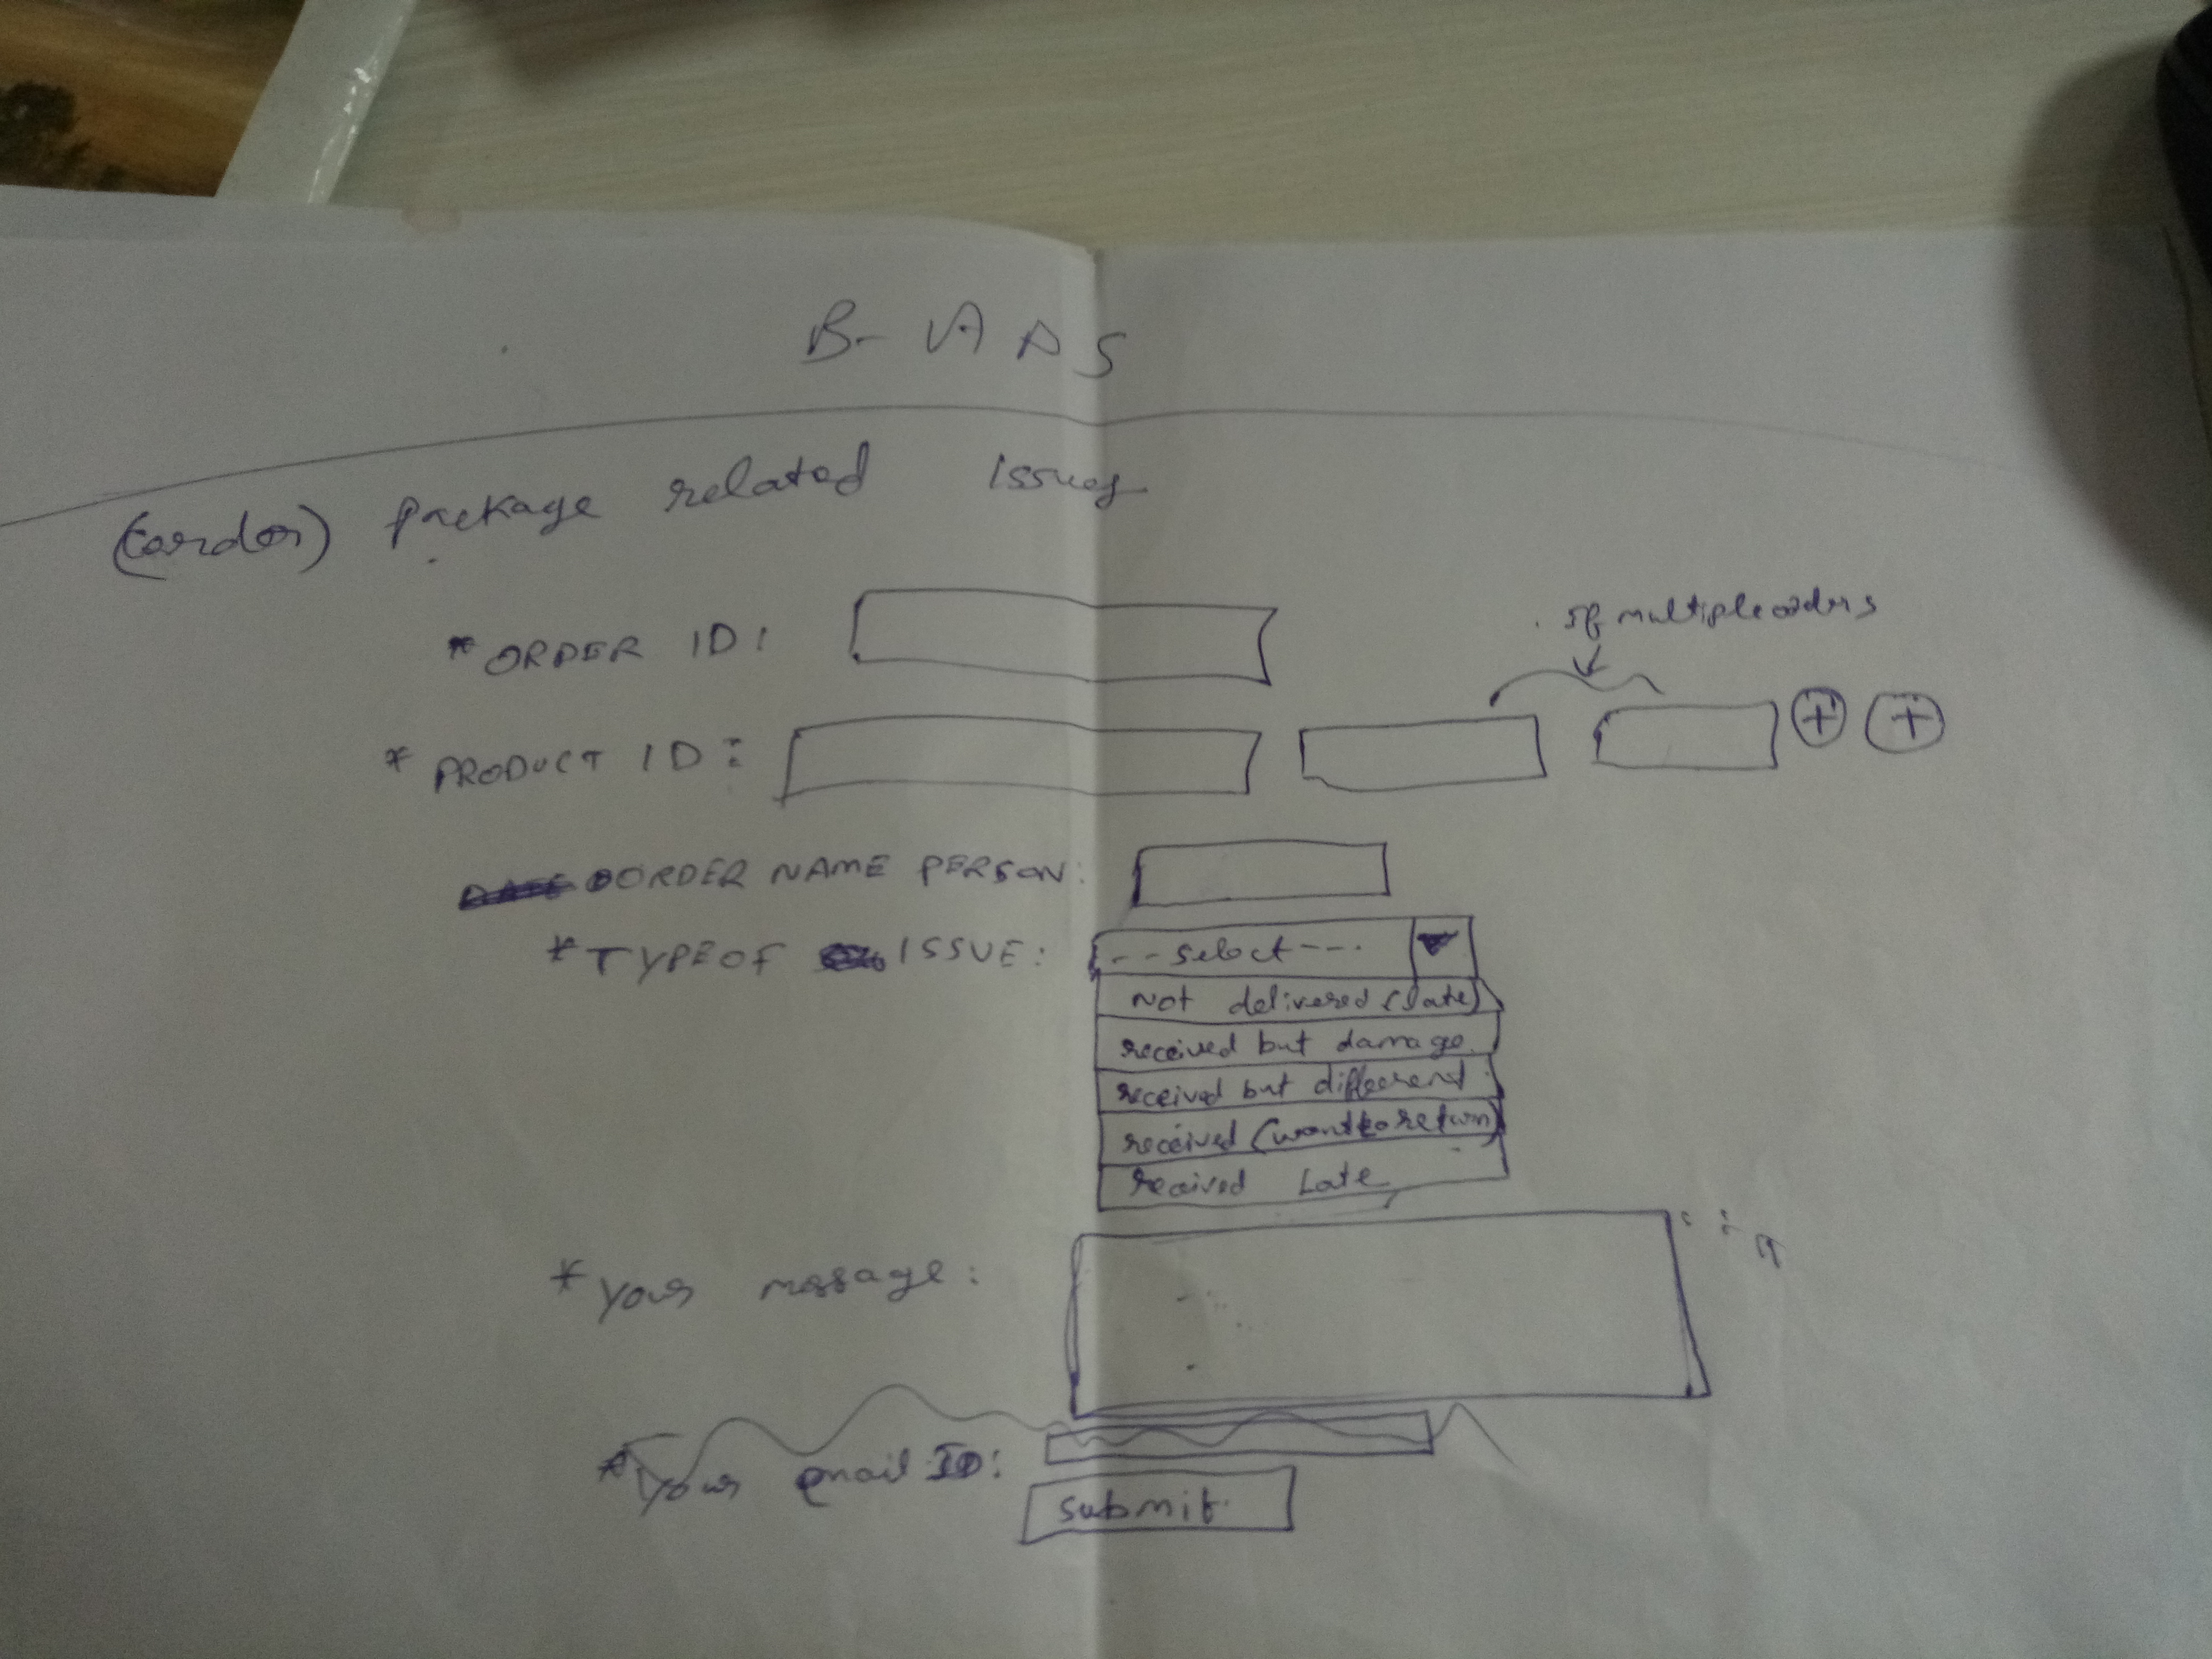 B- VADS
(order) package related issues
*ORDER ID:
. If multiple orders
* PRODUCT ID: + +
ORDER NAME PERSON:
*TYPE OF ISSUE: ---select---
Not delivered (late)
received but damage
received but different
received (want to return)
received Late
*your message:
*your email ID:
submit